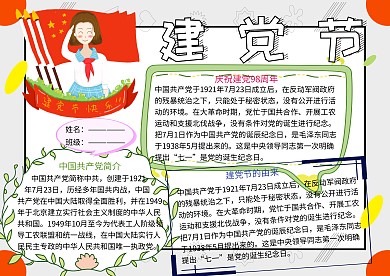 建党节
建党节快乐!
姓名:
班级:
庆祝建党98周年
中国共产党于1921年7月23日成立后，在反动军阀政府
的残暴统治之下，只能处于秘密状态，没有公开进行活
动的环境。在大革命时期，党忙于国共合作、开展工农
运动和支援北伐战争，没有条件对党的诞生进行纪念。
把7月1日作为中国共产党的诞辰纪念日，是毛泽东同志
于1938年5月提出来的。这是中央领导同志第一次明确
提出“七一”是党的诞生纪念日。
中国共产党简介
中国共产党简称中共，创建于1921
年7月23日，历经多年国共内战，中国
共产党在中国大陆取得全面胜利，并在1949
年于北京建立实行社会主义制度的中华人民
共和国。1949年10月至今为代表工人阶级领
导工农联盟和统一战线，在中国大陆实行人
民民主专政的中华人民共和国唯一执政党。
建党节的由来
中国共产党于1921年7月23日成立后，在反动军阀政府
的残暴统治之下，只能处于秘密状态，没有公开进行活
动的环境。在大革命时期，党忙于国共合作、开展工农
运动和支援北伐战争，没有条件对党的诞生进行纪念。
把7月1日作为中国共产党的诞辰纪念日，是毛泽东同志
于1938年5月提出来的。这是中央领导同志第一次明确
提出“七一”是党的诞生纪念日。